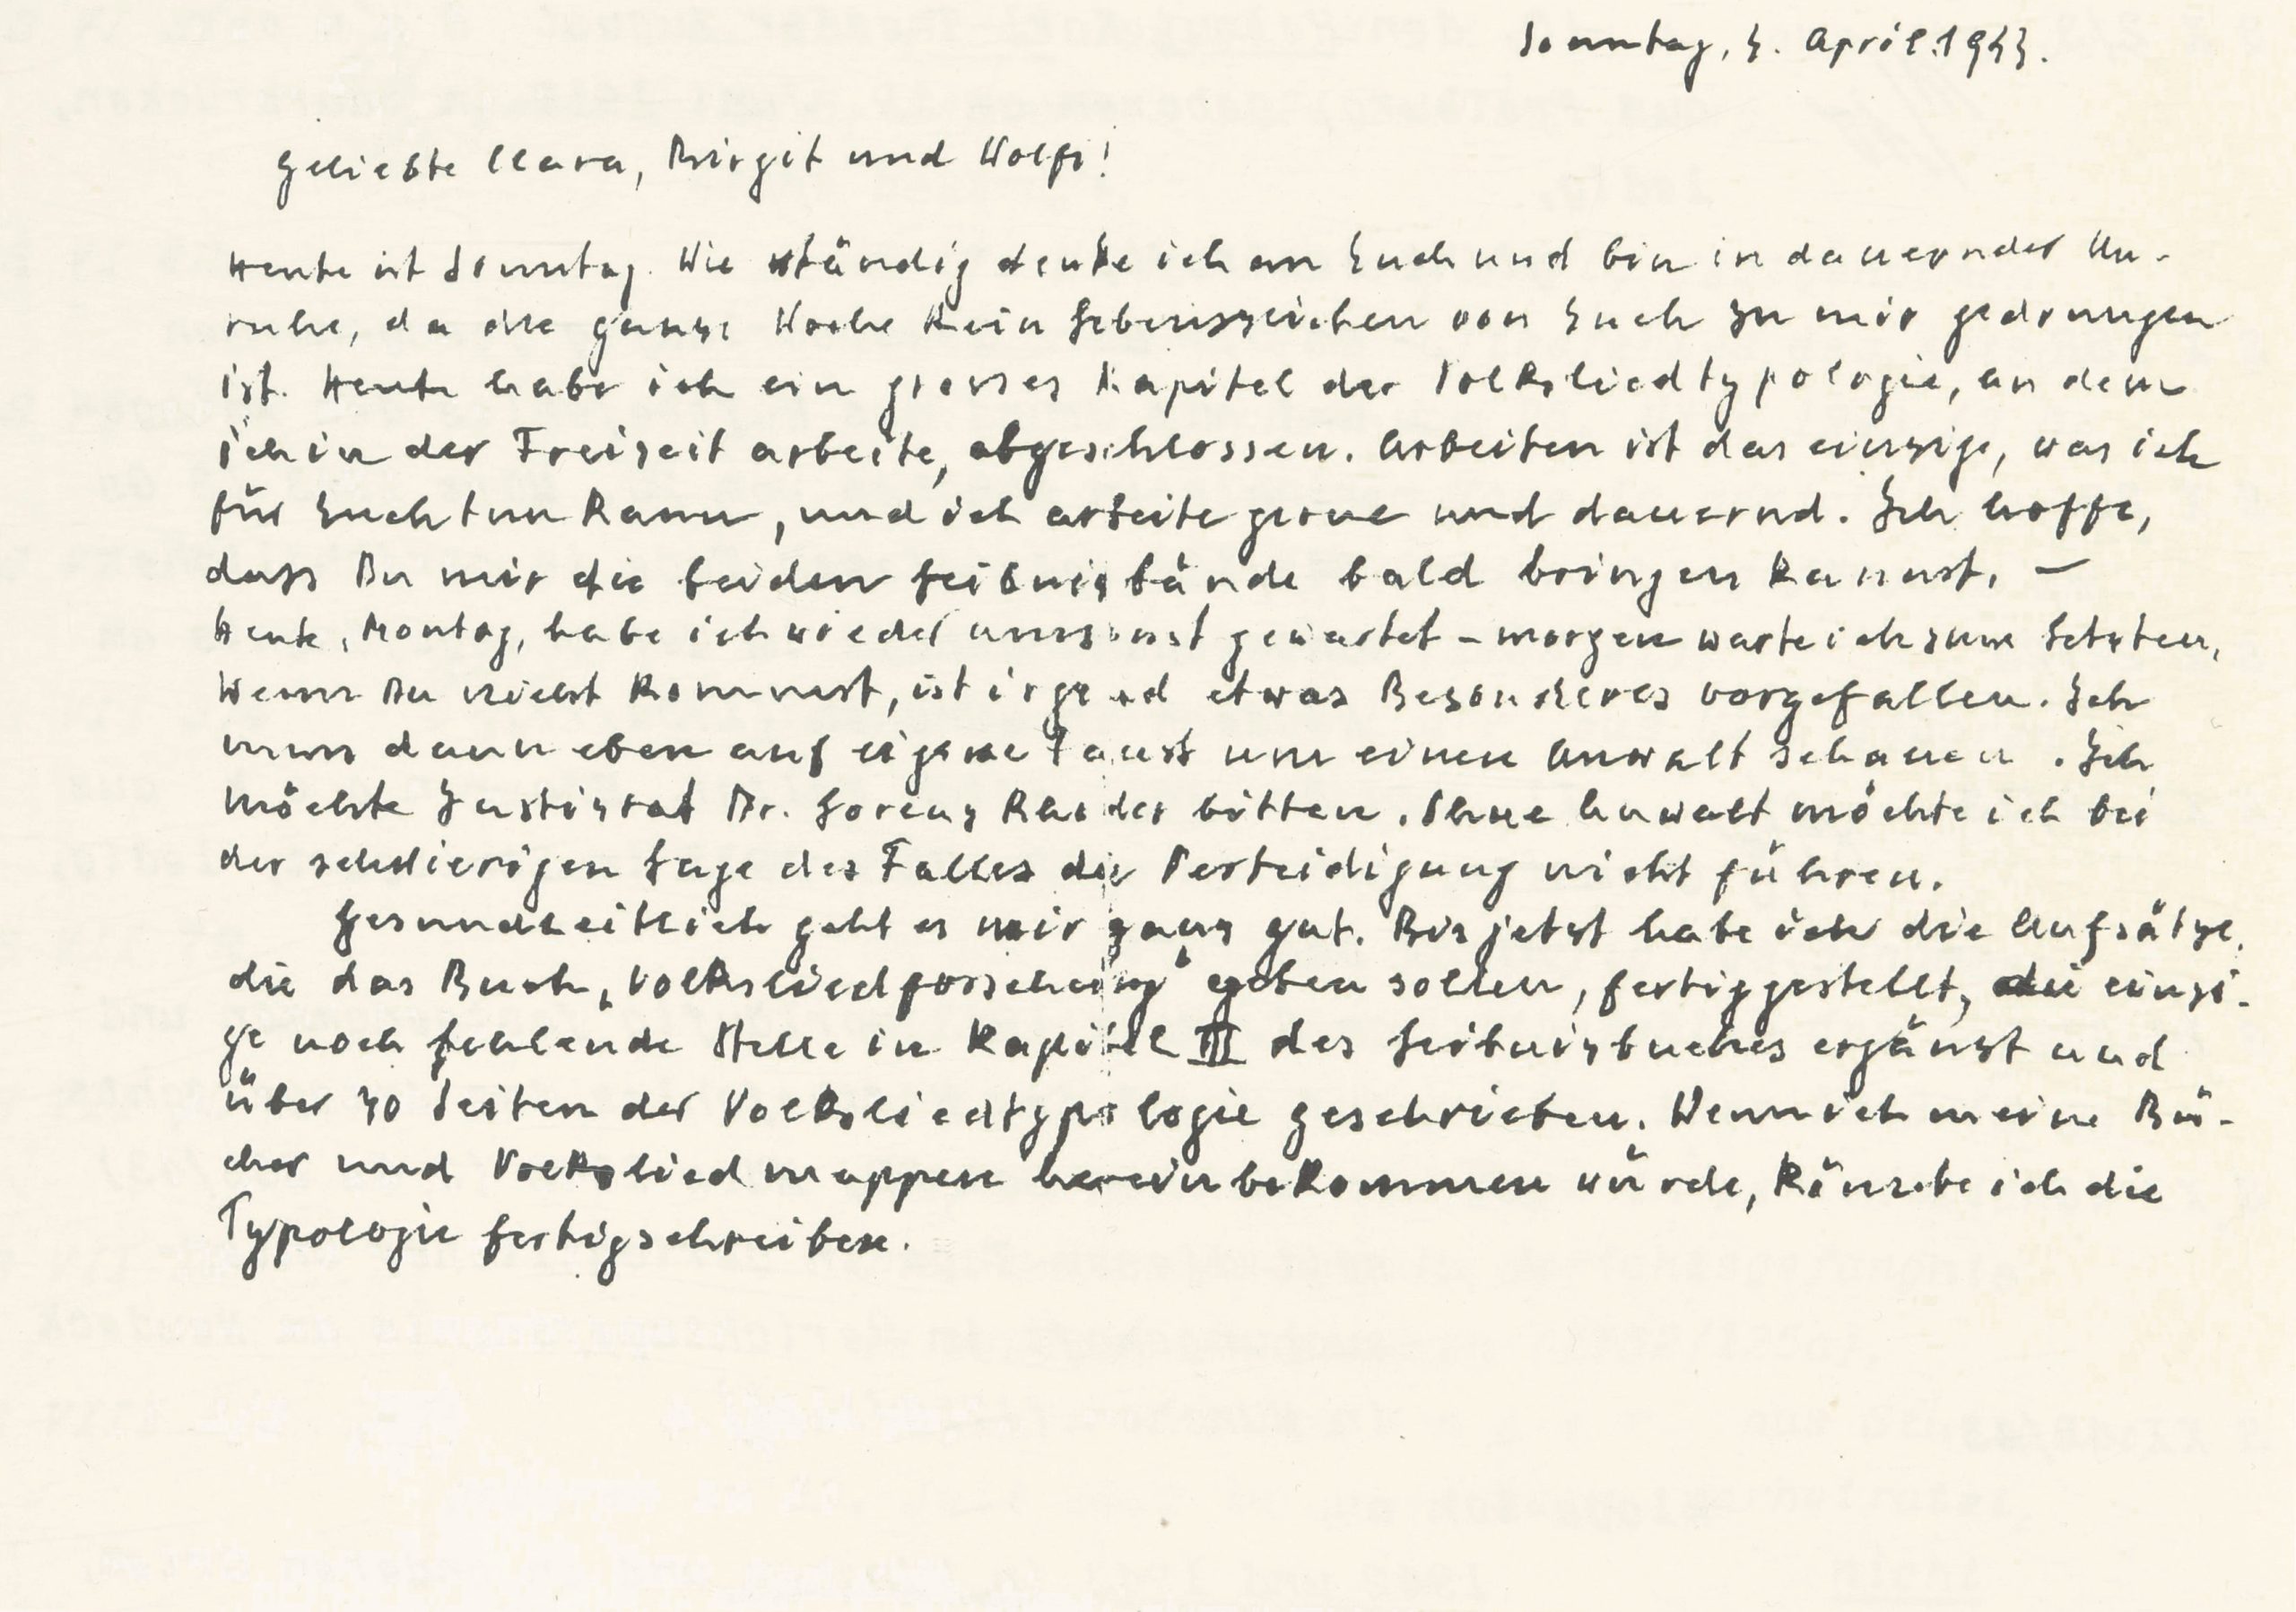 Sonntag, 4. April 1943.
Geliebte Clara, Birgit und Wolfi!
Heute ist Sonntag. Wie ständig denke ich an Euch und bin in dauernder Un-
ruhe, da die ganze Woche kein Lebenszeichen von Euch zu mir gedrungen
ist. Heute habe ich ein grosses Kapitel der Volksliedtypologie, an dem
ich in der Freizeit arbeite, abgeschlossen. Arbeiten ist das einzige, was ich
für Euch tun kann, und ich arbeite gerne und dauernd. Ich hoffe,
dass Du mir die beiden Leibnizbände bald bringen kannst. –
Heute, Montag, habe ich wieder umsonst gewartet – morgen warte ich zum letzten,
Wenn Du nicht kommst, ist irgend etwas Besonderes vorgefallen. Ich
muss dann eben auf eigene Faust um einen Anwalt schauen. Ich
möchte Justizrat Dr. Lorenz Roder bitten. Ohne Anwalt möchte ich bei
der schwierigen Lage des Falles die Verteidigung nicht führen.
Gesundheitlich geht es mir ganz gut. Bis jetzt habe ich die Aufsätze,
die das Buch „Volksliedforschung" geben sollen, fertiggestellt, die einzi-
ge noch fehlende Stelle in Kapitel III des Leibnizbuches ergänzt und
über 40 Seiten der Volksliedtypologie geschrieben. Wenn ich meine Bü-
cher und Volksliedmappen hereinbekommen würde, könnte ich die
Typologie fertigschreiben.